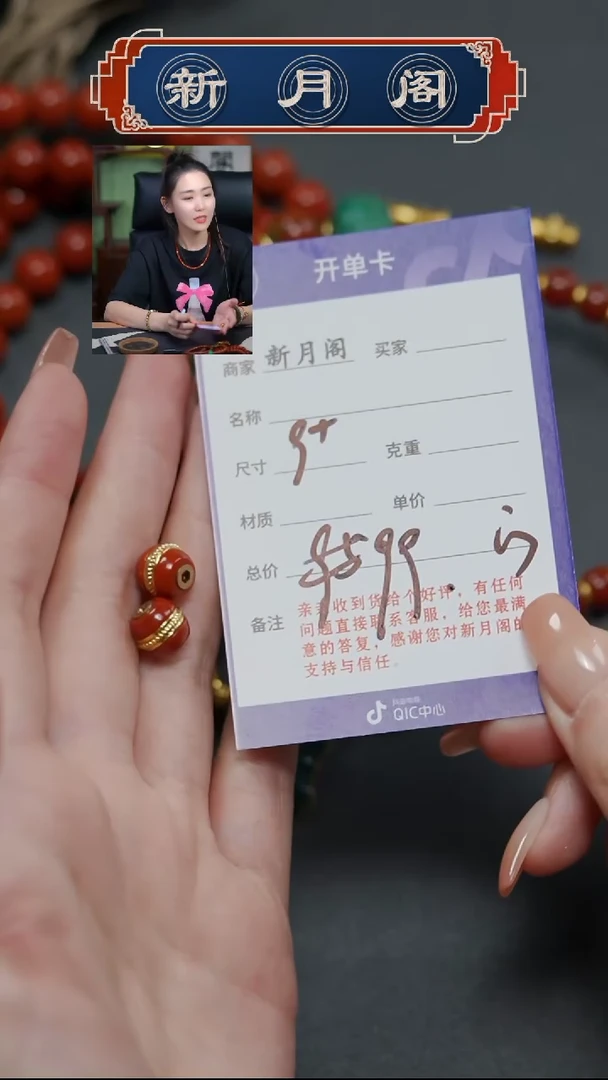 新月阁
开单卡
商家 新月阁 买家
名称
尺寸 9+ 克重
材质 单价
总价 ¥599.
备注 亲亲收到货给个好评，有任何
问题直接联系客服，给您最满
意的答复，感谢您对新月阁的
支持与信任。
QIC中心